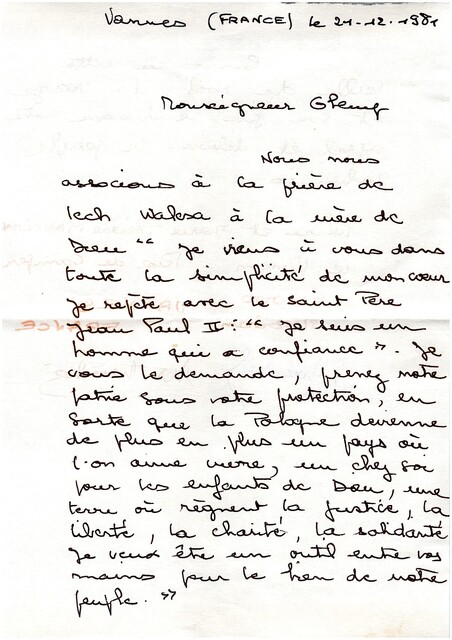 Vannes (FRANCE) le 21-12.1981
Monseigneur Glemp
Nous nous
associons à la prière de
Lech Walesa à la mère de
Dieu "Je viens à vous dans
toute la simplicité de mon cœur
Je répète avec le Saint Père
Jean Paul II : "Je suis un
homme qui a confiance". Je
vous le demande, prenez notre
patrie sous votre protection, en
sorte que la Pologne devienne
de plus en plus un pays où
l'on aime vivre, un chez soi
pour les enfants de Dieu, une
terre où règnent la justice, la
liberté, la charité, la solidarité
Je veux être un outil entre vos
mains pour le bien de notre
peuple."